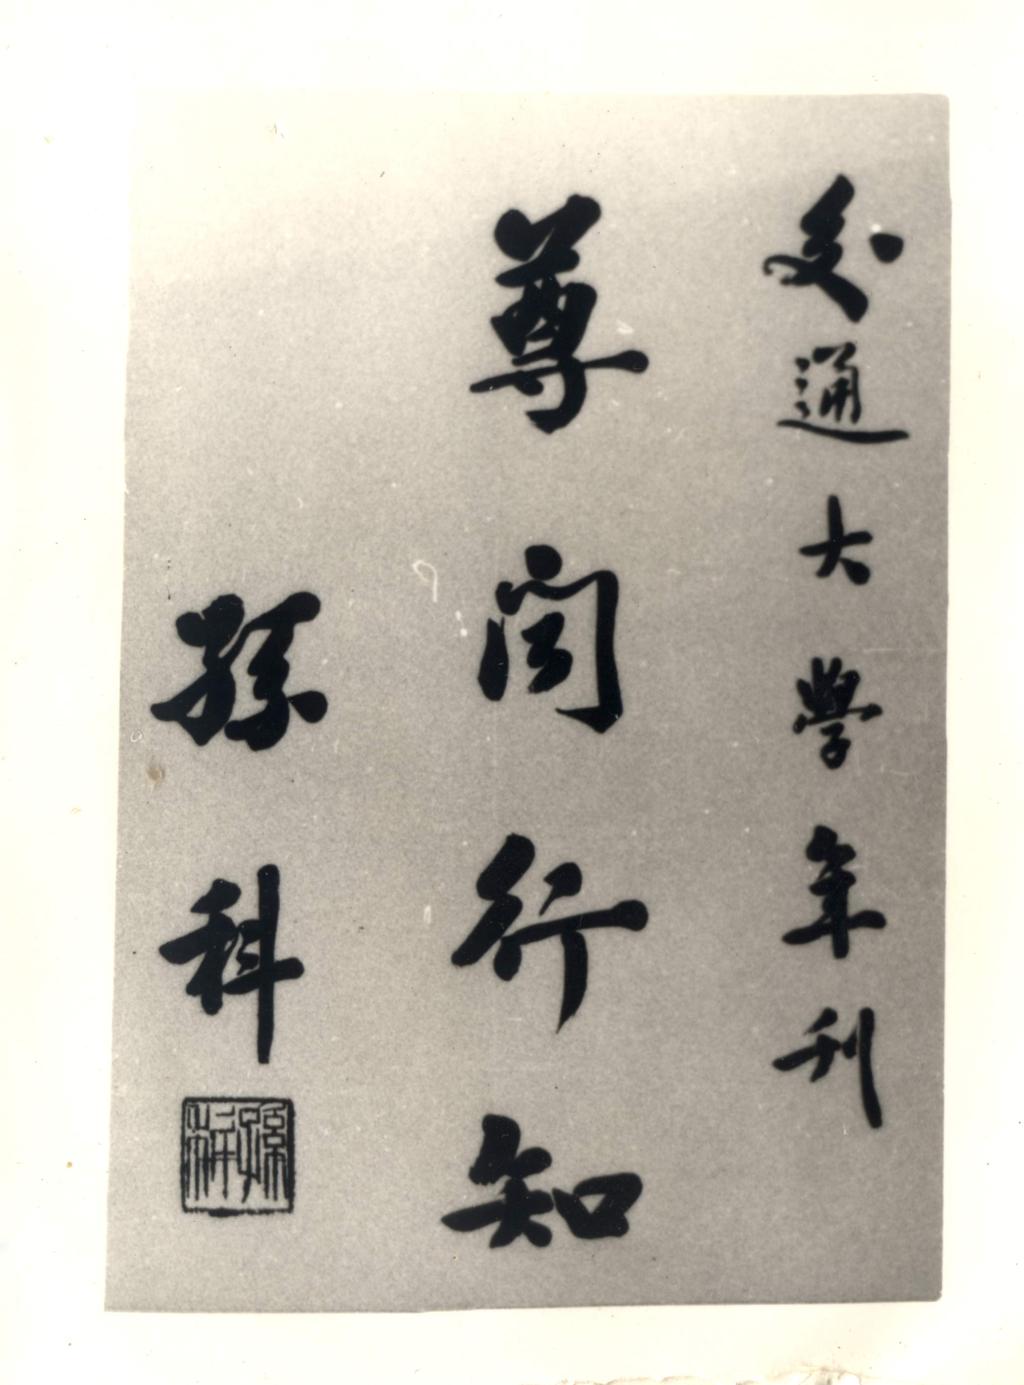 交通大學年刊
尊聞行知
孫科
孫科